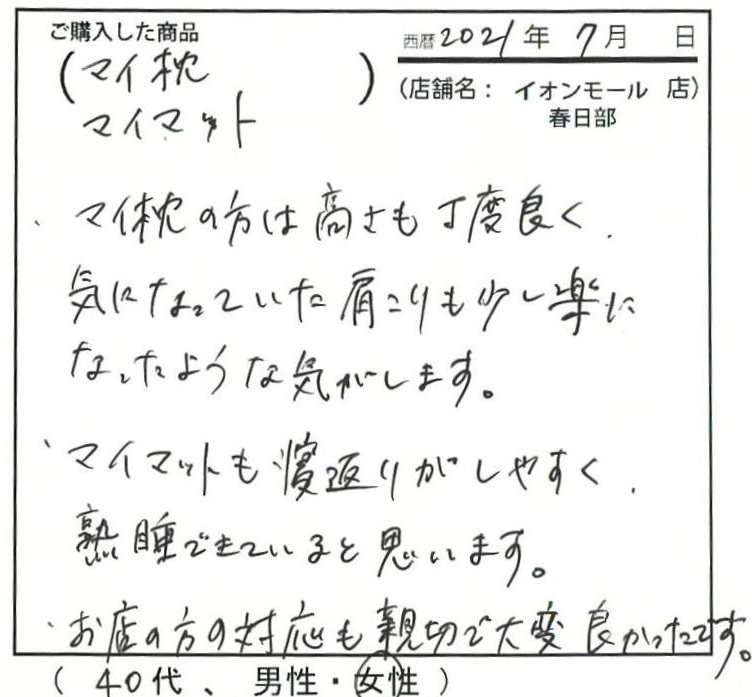 ご購入した商品
西暦2021年 7月 日
(マイ枕 )
マイマット
(店舗名: イオンモール 店)
春日部
、マイ枕の方は高さも丁度良く、
気になっていた肩こりも少し楽に
なったような気がします。
、マイマットも寝返りがしやすく、
熟睡できていると思います。
・お店の方の対応も親切で大変良かったです。
( 40代 、 男性・女性 )